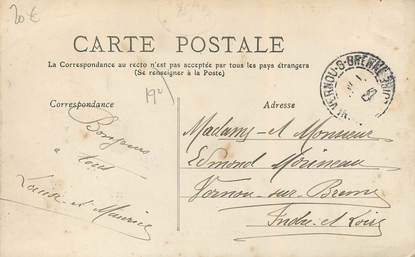 20 €
CARTE POSTALE
La Correspondance au recto n'est pas acceptée par tous les pays étrangers
(Se renseigner à la Poste)
VERNOU-S-BRENNE
Correspondance
Adresse
Bonjour
à
tous
Louise et Maurice
Madame et Monsieur
Edmond Moineau
Vernou-sur-Brenne
Indre et Loire